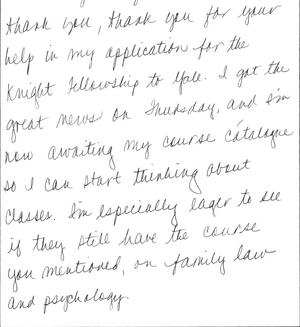 thank you, thank you for your
help in my application for the
Knight Fellowship to Yale. I got the
great news on Thursday, and I'm
now awaiting my course catalogue
so I can start thinking about
classes. I'm especially eager to see
if they still have the course
you mentioned, on family law
and psychology.